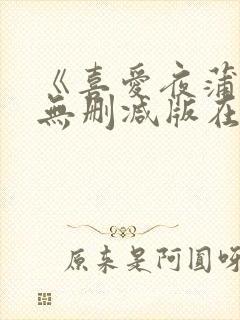 《喜愛夜蒲
無刪減版在
原來是阿圓呀